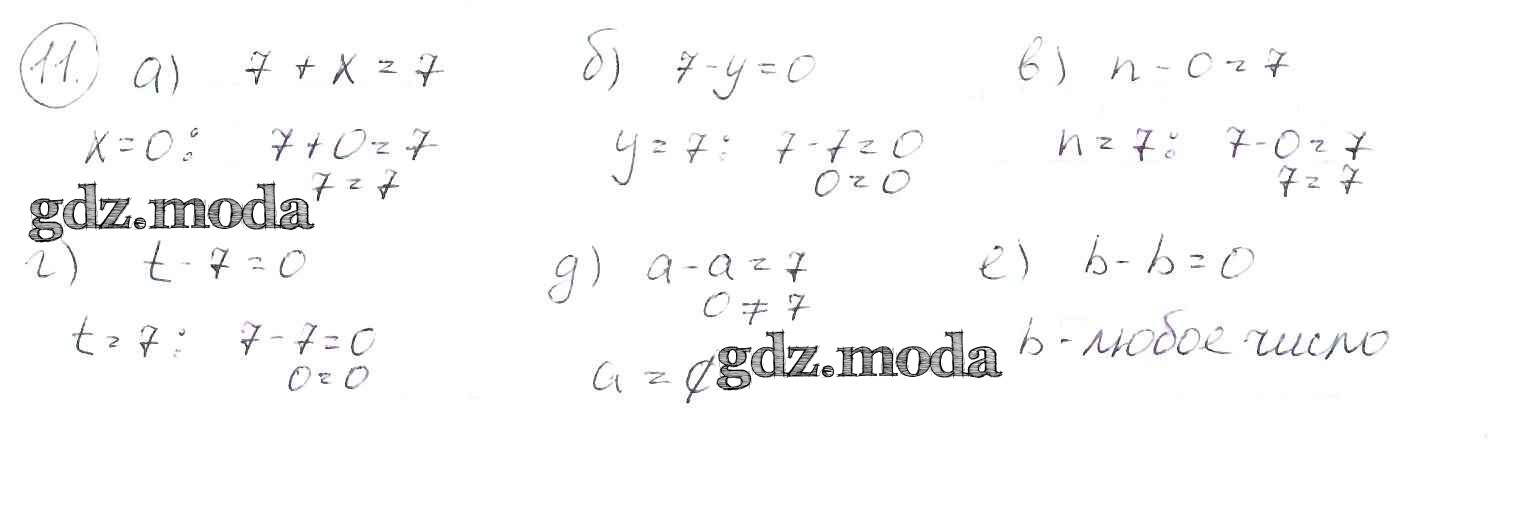 11. а) 7 + x = 7 б) 7 - y = 0 в) n - 0 = 7
x = 0: 7 + 0 = 7 y = 7: 7 - 7 = 0 n = 7: 7 - 0 = 7
7 = 7 0 = 0 7 = 7
gdz.moda
г) t - 7 = 0 д) a - a = 7 е) b - b = 0
0 ≠ 7
t = 7: 7 - 7 = 0 b - любое число
0 = 0 a = ∅ gdz.moda